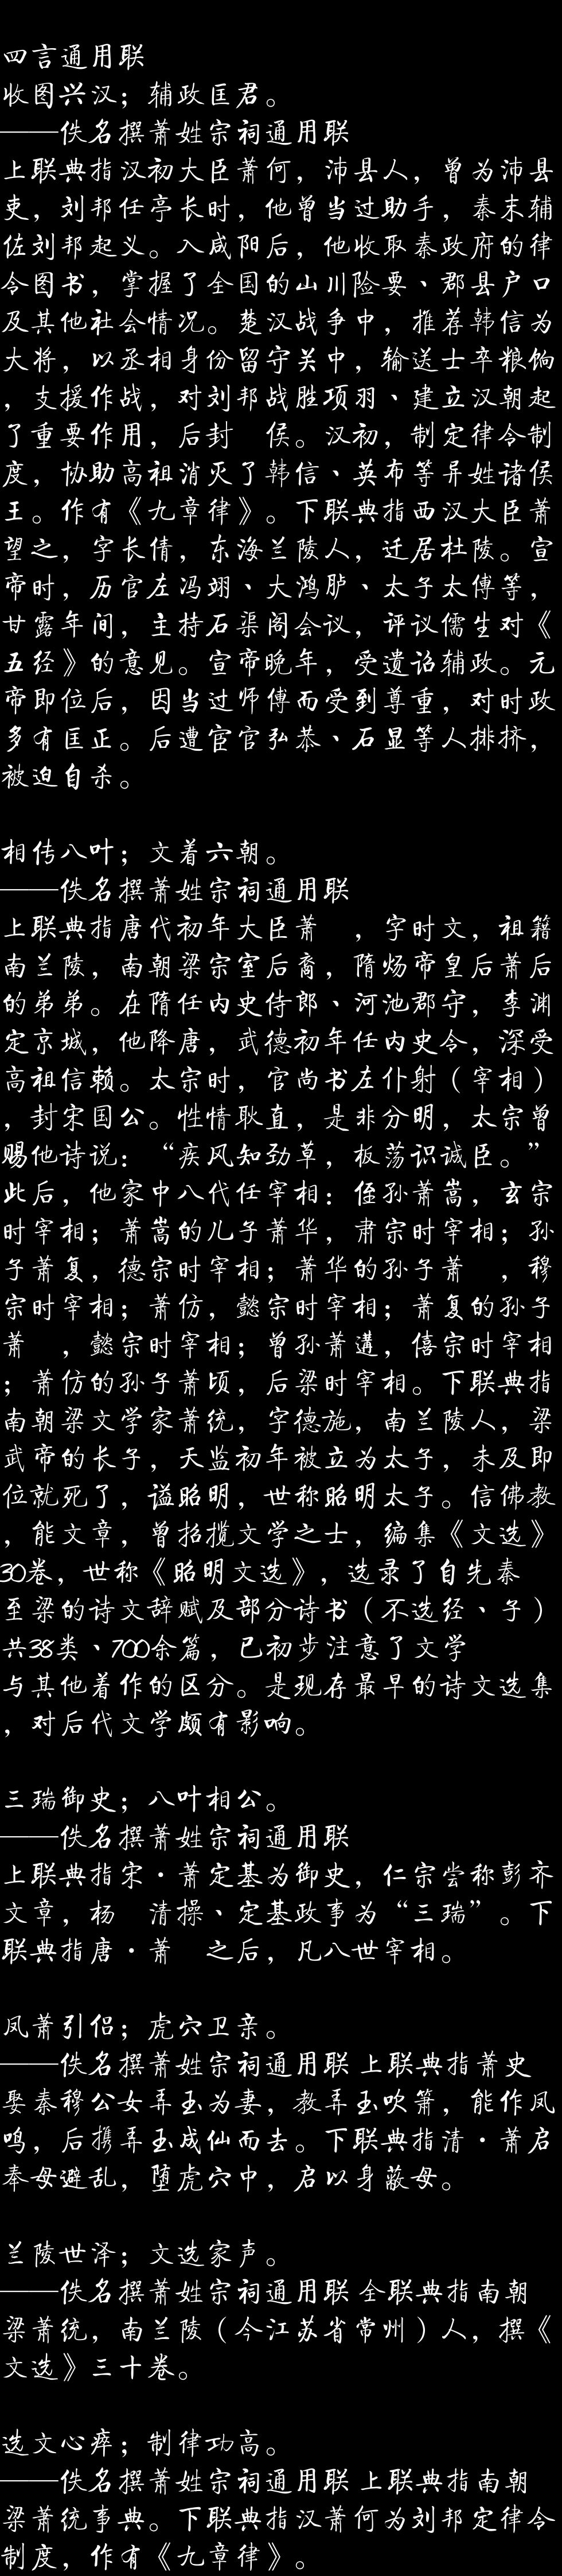 四言通用联
收图兴汉；辅政匡君。
——佚名撰萧姓宗祠通用联
上联典指汉初大臣萧何，沛县人，曾为沛县
吏，刘邦任亭长时，他曾当过助手，秦末辅
佐刘邦起义。入咸阳后，他收取秦政府的律
令图书，掌握了全国的山川险要、郡县户口
及其他社会情况。楚汉战争中，推荐韩信为
大将，以丞相身份留守关中，输送士卒粮饷
，支援作战，对刘邦战胜项羽、建立汉朝起
了重要作用，后封　侯。汉初，制定律令制
度，协助高祖消灭了韩信、英布等异姓诸侯
王。作有《九章律》。下联典指西汉大臣萧
望之，字长倩，东海兰陵人，迁居杜陵。宣
帝时，历官左冯翊、大鸿胪、太子太傅等，
甘露年间，主持石渠阁会议，评议儒生对《
五经》的意见。宣帝晚年，受遗诏辅政。元
帝即位后，因当过师傅而受到尊重，对时政
多有匡正。后遭宦官弘恭、石显等人排挤，
被迫自杀。
相传八叶；文着六朝。
——佚名撰萧姓宗祠通用联
上联典指唐代初年大臣萧　，字时文，祖籍
南兰陵，南朝梁宗室后裔，隋炀帝皇后萧后
的弟弟。在隋任内史侍郎、河池郡守，李渊
定京城，他降唐，武德初年任内史令，深受
高祖信赖。太宗时，官尚书左仆射（宰相）
，封宋国公。性情耿直，是非分明，太宗曾
赐他诗说：“疾风知劲草，板荡识诚臣。”
此后，他家中八代任宰相：侄孙萧嵩，玄宗
时宰相；萧嵩的儿子萧华，肃宗时宰相；孙
子萧复，德宗时宰相；萧华的孙子萧　，穆
宗时宰相；萧仿，懿宗时宰相；萧复的孙子
萧　，懿宗时宰相；曾孙萧遘，僖宗时宰相
；萧仿的孙子萧顷，后梁时宰相。下联典指
南朝梁文学家萧统，字德施，南兰陵人，梁
武帝的长子，天监初年被立为太子，未及即
位就死了，谥昭明，世称昭明太子。信佛教
，能文章，曾招揽文学之士，编集《文选》
30卷，世称《昭明文选》，选录了自先秦
至梁的诗文辞赋及部分诗书（不选经、子）
共38类、700余篇，已初步注意了文学
与其他着作的区分。是现存最早的诗文选集
，对后代文学颇有影响。
三瑞御史；八叶相公。
——佚名撰萧姓宗祠通用联
上联典指宋·萧定基为御史，仁宗尝称彭齐
文章，杨　清操、定基政事为“三瑞”。下
联典指唐·萧　之后，凡八世宰相。
凤萧引侣；虎穴卫亲。
——佚名撰萧姓宗祠通用联 上联典指萧史
娶秦穆公女弄玉为妻，教弄玉吹箫，能作凤
鸣，后携弄玉成仙而去。下联典指清·萧启
奉母避乱，堕虎穴中，启以身蔽母。
兰陵世泽；文选家声。
——佚名撰萧姓宗祠通用联 全联典指南朝
梁萧统，南兰陵（今江苏省常州）人，撰《
文选》三十卷。
选文心瘁；制律功高。
——佚名撰萧姓宗祠通用联 上联典指南朝
梁萧统事典。下联典指汉萧何为刘邦定律令
制度，作有《九章律》。